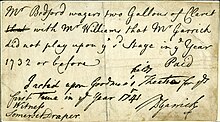 Mr Bedford wagers two Gallons of Claret
with Mr Williams that Mr Garrick
did not play upon ye Stage in ye Year
1732 or before
Paid
I acted upon Goodman's for ye
first time in ye Year 1741
Witness
DGarrick
Somerset Draper.